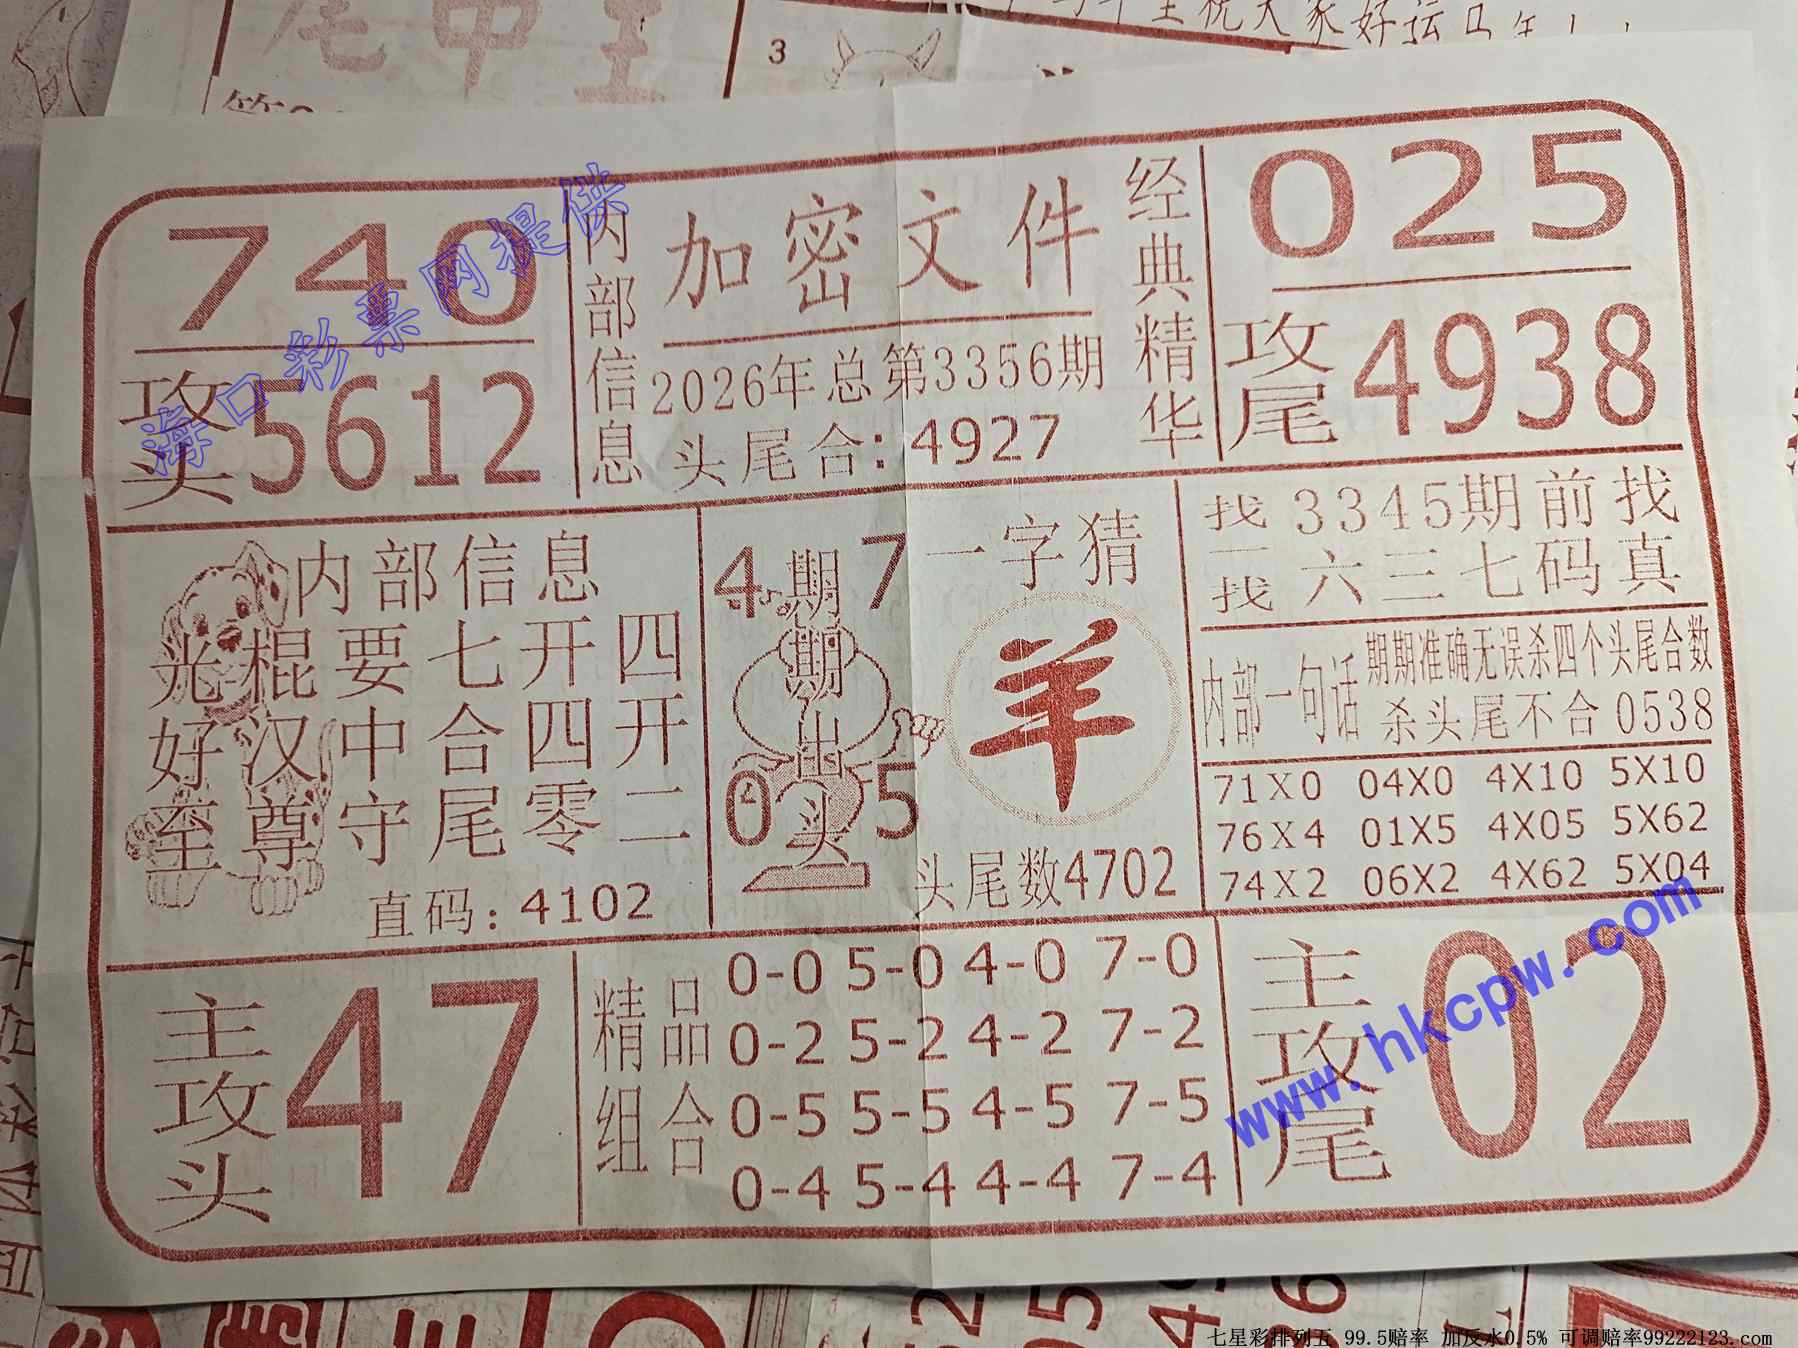 3
740
攻头 5612
内部信息
加密文件
2026年总第3356期
头尾合:4927
经典精华
025
攻尾 4938
海口彩票网提供
内部信息
光棍要七开四
好汉中合四开
至尊守尾零二
直码:4102
4 7
期期出头
0 5
一字猜
羊
头尾数4702
找一找
3345期前找
六三七码真
内部一句话
期期准确无误杀四个头尾合数
杀头尾不合0538
71X0 04X0 4X10 5X10
76X4 01X5 4X05 5X62
74X2 06X2 4X62 5X04
主攻头 47
精品组合
0-0 5-0 4-0 7-0
0-2 5-2 4-2 7-2
0-5 5-5 4-5 7-5
0-4 5-4 4-4 7-4
主攻尾 02
www.hkcpw.com
七星彩排列五 99.5赔率 加反水0.5% 可调赔率99222123.com